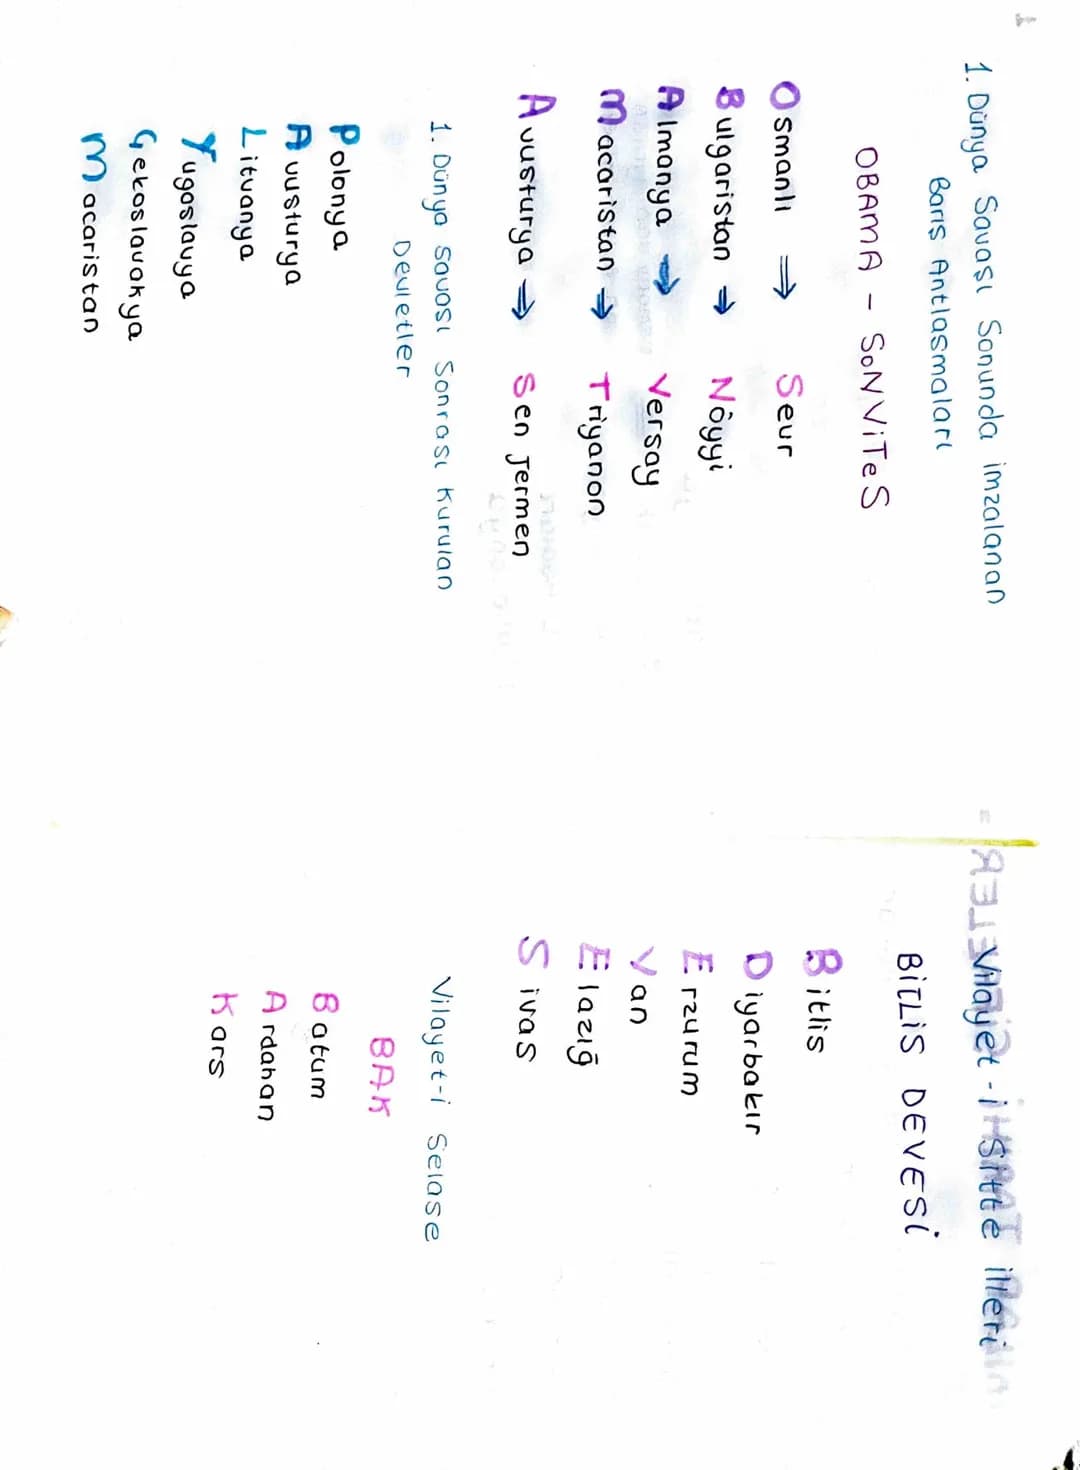 1. Dünya Savası Sonunda imzalanan
Barış Antlasmaları
OBAMA - SoNViTeS
Osmanlı ⇒ Seur
Bulgaristan → Nöyyi
Almanya → Versay
Macaristan → Triyanon
Avusturya → Sen Jermen
1. Dünya Savası Sonrası Kurulan
Devletler
Polonya
Avusturya
Lituanya
Yugoslavya
Çekoslavakya
Macaristan
Vilayet-i Sitte illeri
BİTLİS DEVESİ
Bitlis
Diyarbakır
Erzurum
Van
Elazığ
Sivas
Vilayet-i Selase
BAK
Batum
Ardahan
Kars